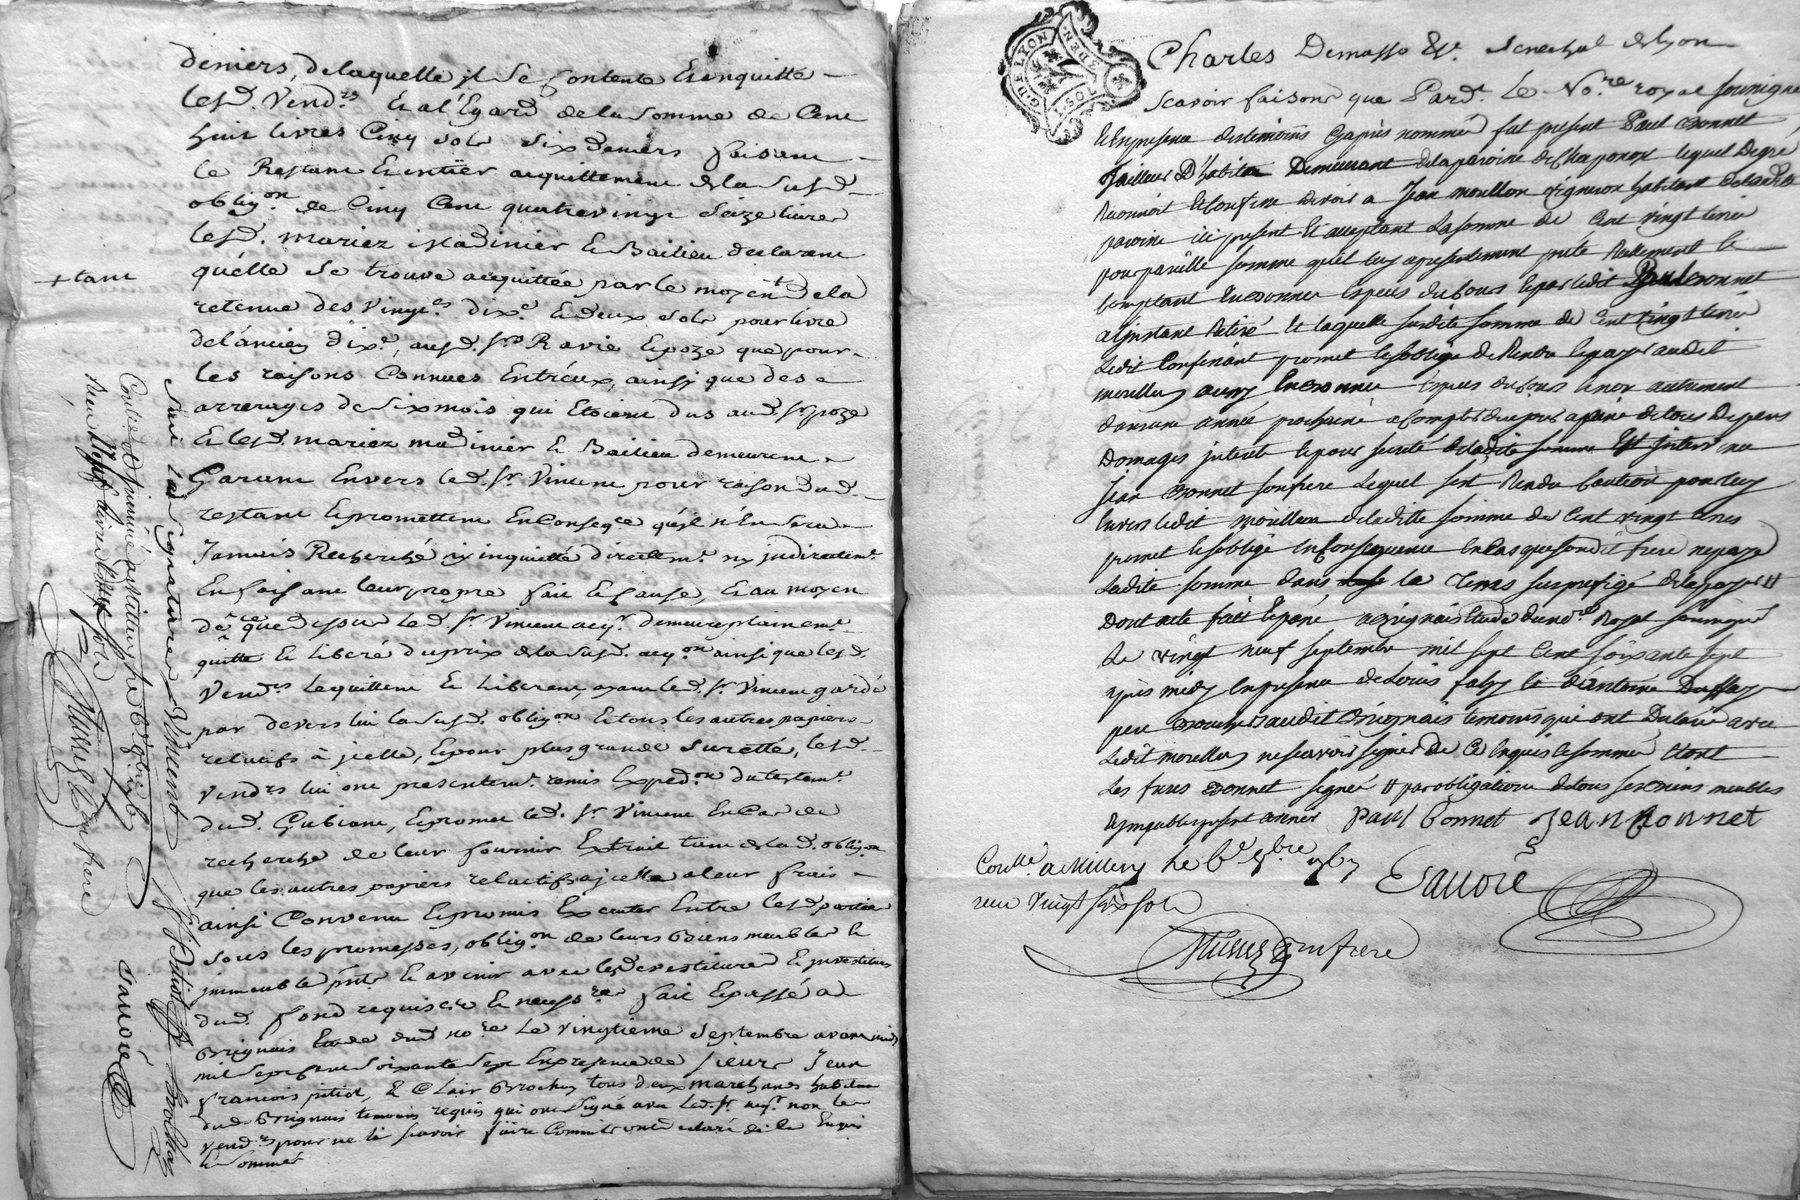 deniers, de laquelle jl se Contente Et en quitte
lesd. vend.rs Et a l'Egard de la somme de Cent
huit livres Cinq sols six deniers faisant
le Restant Et entier acquittement de la susd.
oblig.on de Cinq Cent quatre vingt seize livres
lesd. mariez madinier Et Bailieu declarant
quelle se trouve acquittée par le moyen de la
+ tant
retenue des vingt.es dix.e Et deux sols pour livre
de l'ancien dix.e, aud. sr Ravie Epoze que pour
les raisons Connues Entréux, ainsy que des
arrerages de six mois qui Etoient dus aud. sr poze
Et lesd. mariez madinier Et Bailieu demeurent
Garant Envers led. sr Vincent pour raison dud.
restant Et promettent En Conseqce quil n'En sera
Jamais Recherché ny inquietté directem.t ny indirectem.t
En faisant leur propre fait Et Cause, Et au moyen
de ce que dessus led. sr Vincent acq.r demeure plainem.t
quitte Et liberé du prix de la susd. acq.on ainsi que lesd.
Vend.rs le quittent Et liberent, ayant led. sr Vincent gardé
par devers lui la susd. oblig.on Et tous les autres papiers
relatifs à jcelle, Et pour plus grande suretté, lesd.
vendrs lui ont presentem.t remis Exped.on du testam.t
dud. Gubiant, Et promet led. sr Vincent En Cas de
recherche de leur fournir Extrait tant de lad. oblig.on
que les autres papiers relatifs a jcelle a leur frais
ainsi Convenu Et promis Executer Entre lesd. parties
sous les promesses, oblig.on de leurs Biens meubles Et
jmmeubles pnts Et avenir avec les devestitures Et jnvestitures
dud. fond requises Et necess.res fait Et passé a
Brignais Etude dud. no.re Le vingtieme septembre avant midy
mil sept Cent soixante sept En presence de sieurs Jean
francois pitiot, Et Clair Brochay tous deux marchands habitans
dud. Brignais temoins requis qui ont signé avec led. sr acq.r non les
vend.rs pour ne le scavoir faire Comme ils ont declaré de ce Enquis
Et sommés
suit la signature Vincent
Pitiot Brochay
Savoie
Charles Demasso &c. senechal de lyon
G. DE LYON
scavoir faisons que Pard.t le No.re royal soussigné
Et En presence des temoins Cy apres nommés fut present Paul Bonnet
Tailleur D'habits Demeurant de la paroisse de Chaponost lequel De gré
Reconnoit Et Confesse devoir a Jean morellon vigneron habitant de ladite
paroisse ici present Et acceptant La somme de Cent vingt livres
pour pareille somme quil luy a presentement preté Reellement Et
Comptant En Bonnes Especes du Cours Et par ledit Paul Bonnet
a l'instant Retiré Et laquelle susdite somme de Cent vingt livres
Ledit Confessant promet Et s'oblige de Rendre Et payer audit
morellon aussy En Bonnes Especes du Cours Et non autrement
dans une année prochaine a Compter de ce jour a peine de tous Depens
Domages jnterets Et pour sureté de ladite somme Est interv nu
Jean Bonnet son frere Lequel s'est Rendu Caution pour luy
Envers ledit morellon de ladite somme de Cent vingt livres
promet Et s'oblige En Consequence En Cas que sondit frere ne paye
Ladite somme dans le tems sus prefigé de la payer #
Dont acte fait Et passé a Brignais Etude du no.re Royal soussigné
Le vingt neuf septembre mil sept Cent soixante sept
apres midy En presence de Louis faby Et de antoine Dussay
audit Brignais temoins qui ont Declaré avec
Ledit morellon ne scavoir signer de Ce Enquis Et sommés Et ont
Les freres Bonnet signés # par obligation de tous ses Biens meubles
Et jmmeubles present avenir Paul Bonnet Jean Bonnet
Con.lé a Millery Le 6.e 8.bre 1767
recu vingt six sols
Savoie